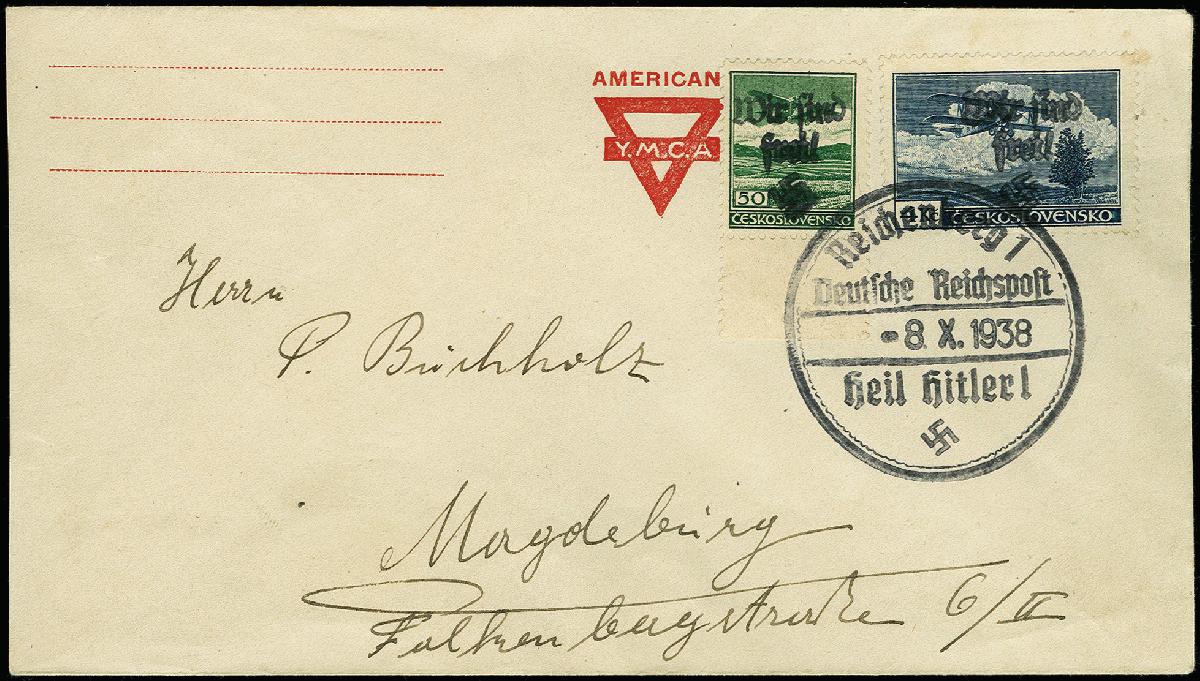 AMERICAN
Y.M.C.A.
Wir sind
frei!
50
ČESKOSLOVENSKO
Wir sind
frei!
4 Kč ČESKOSLOVENSKO
Reichenberg 1
Deutsche Reichspost
-8. X. 1938
Heil Hitler!
Herrn
P. Buchholz
Magdeburg
Falkenbergstraße 6/II